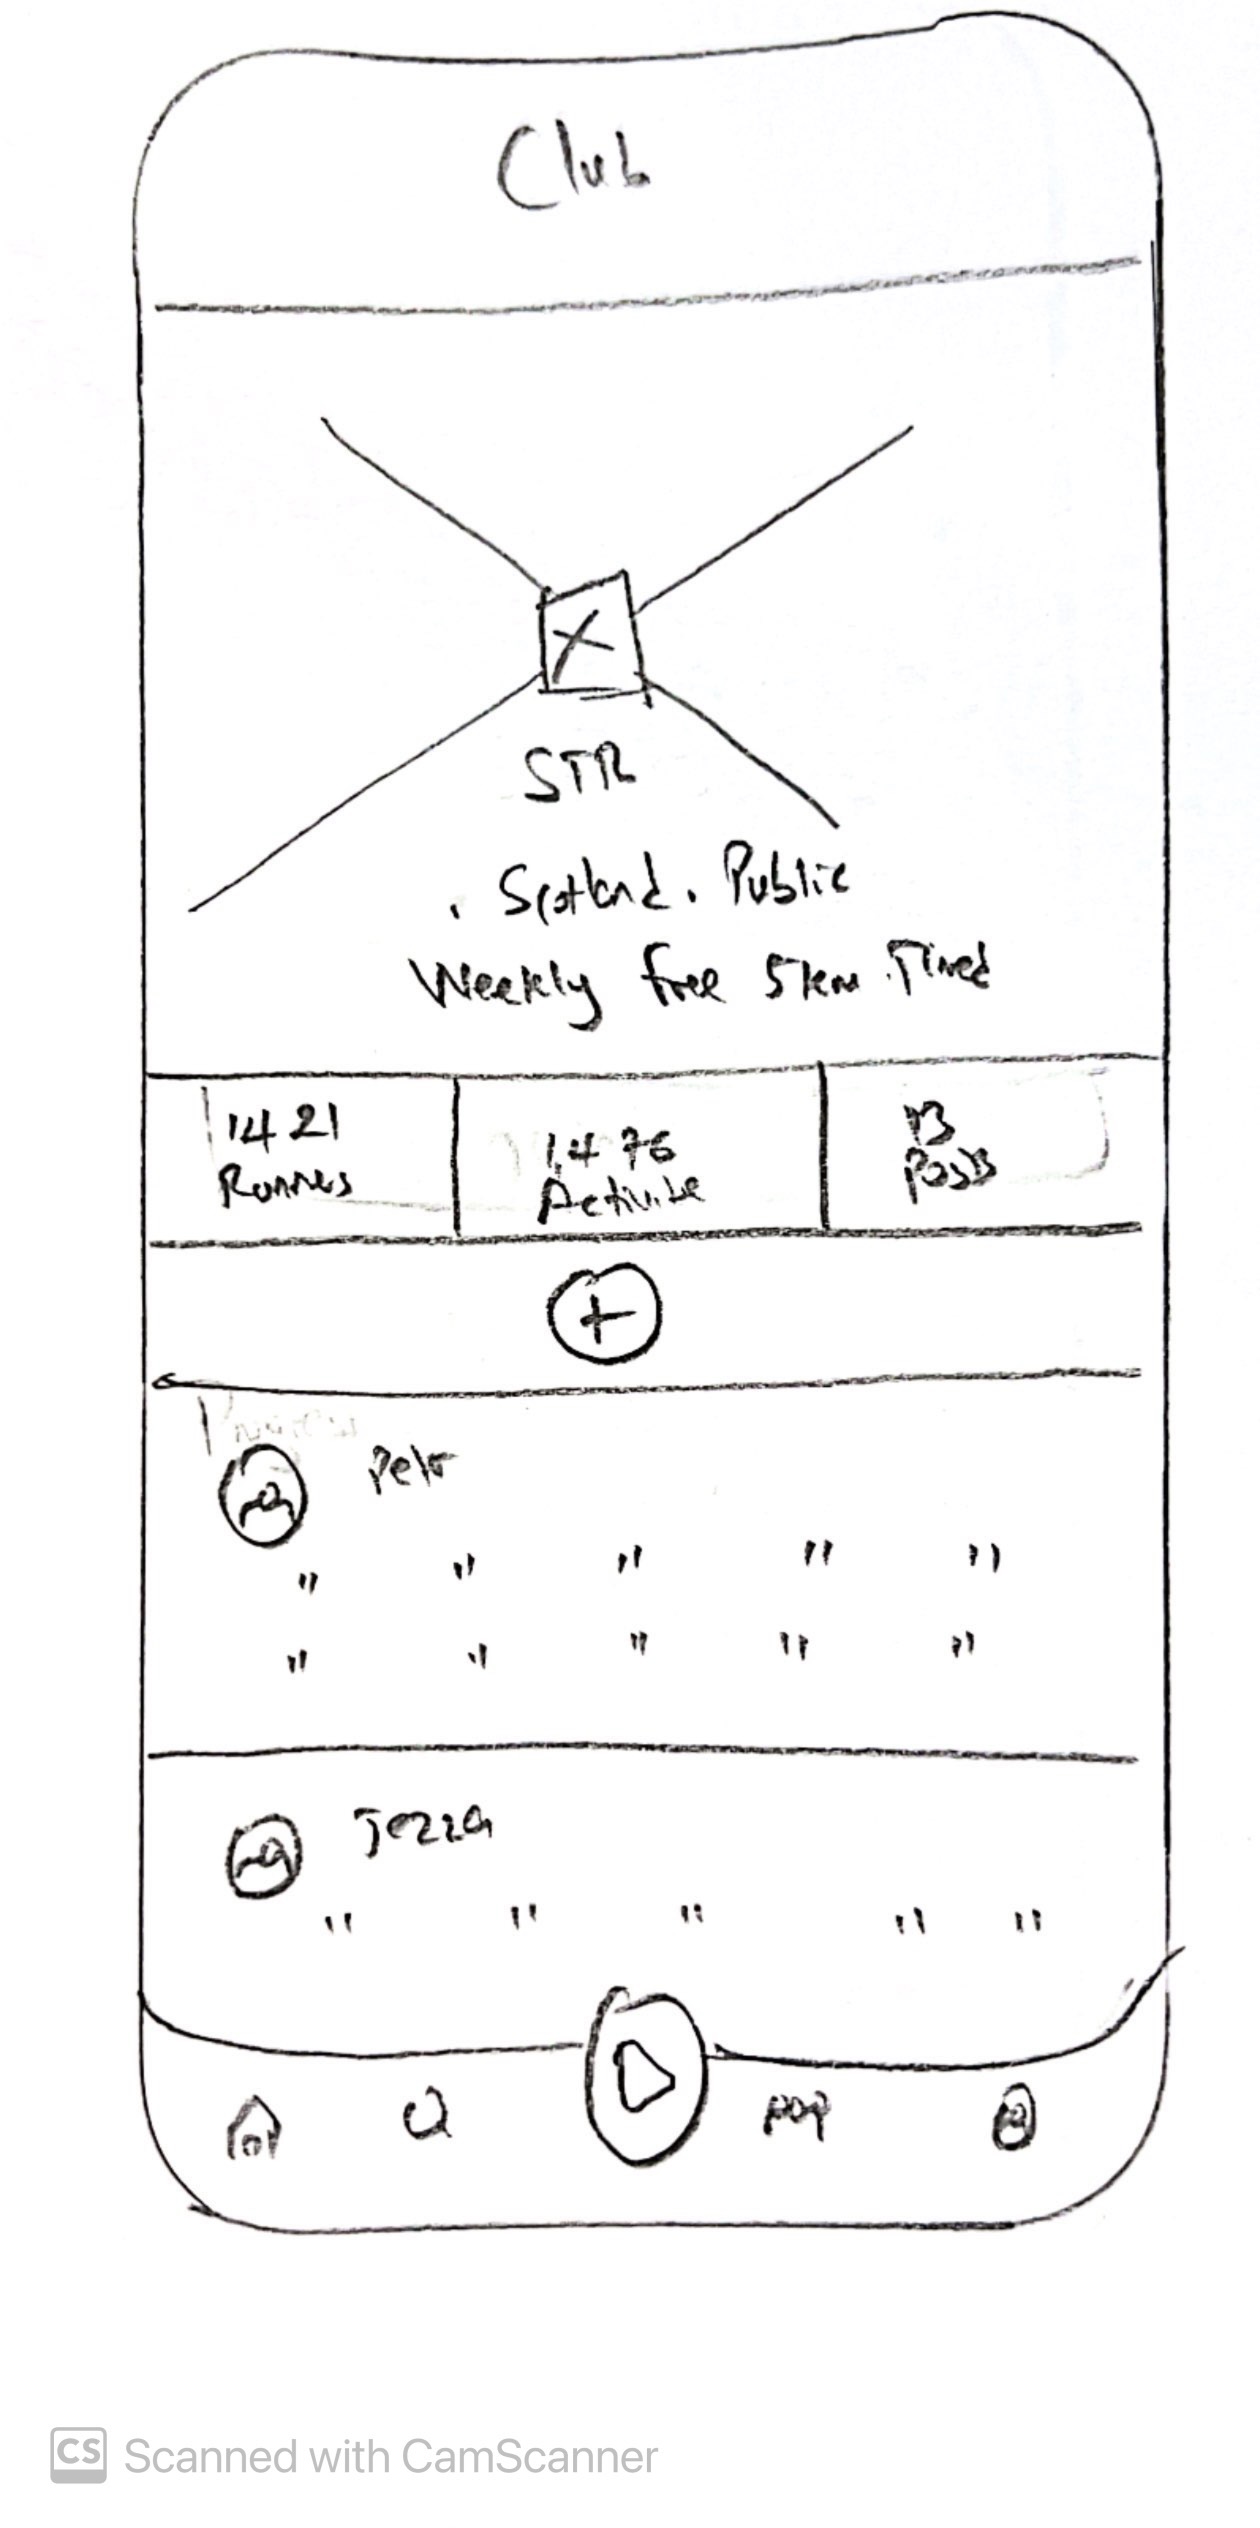 Club
X
STR
. Scotland . Public
Weekly free 5km Timed
1421
Runners
1,476
Activitie
13
Posts
+
Petr
" " " " "
" " " " "
Jezza
" " " " "
CS Scanned with CamScanner